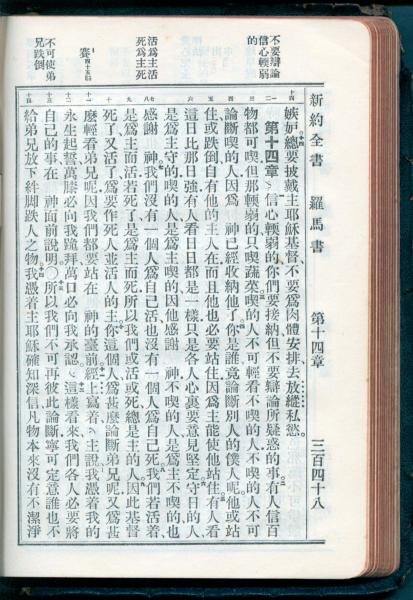 新約全書 羅馬書 第十四章 三百四十八
不要辯論
信心輭弱
的
活爲主活
死爲主死
賽四十五章
不可使弟
兄跌倒
嫉妒總要披戴主耶穌基督不要爲肉體安排去放縱私慾
第十四章 信心輭弱的你們要接納但不要辯論所疑惑的事有人信百
物都可喫但那輭弱的只喫蔬菜喫的人不可輕看不喫的人不喫的人不可
論斷喫的人因爲 神已經收納他了你是誰竟論斷別人的僕人呢他或站
住或跌倒自有他的主人在而且他也必要站住因爲主能使他站住有人看
這日比那日強有人看日日都是一樣只是各人心裏要意見堅定守日的人
是爲主守的喫的人是爲主喫的因他感謝 神不喫的人是爲主不喫的也
感謝 神我們沒有一個人爲自己活也沒有一個人爲自己死我們若活着
是爲主而活若死了是爲主而死所以我們或活或死總是主的人因此基督
死了又活了爲要作死人並活人的主你這個人爲甚麼論斷弟兄呢又爲甚
麼輕看弟兄呢因我們都要站在 神的臺前經上寫着主說我憑着我的
永生起誓萬膝必向我跪拜萬口必向我承認這樣看來我們各人必要將
自己的事在 神面前說明○所以我們不可再彼此論斷寧可定意誰也不
給弟兄放下絆腳跌人之物我憑着主耶穌確知深信凡物本來沒有不潔淨